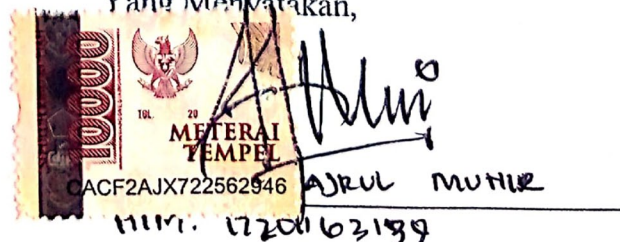 Yang Menyatakan,
10000
TGL. 20
METERAI
TEMPEL
CACF2AJX722562946
AJRUL MUNIR
NIM.